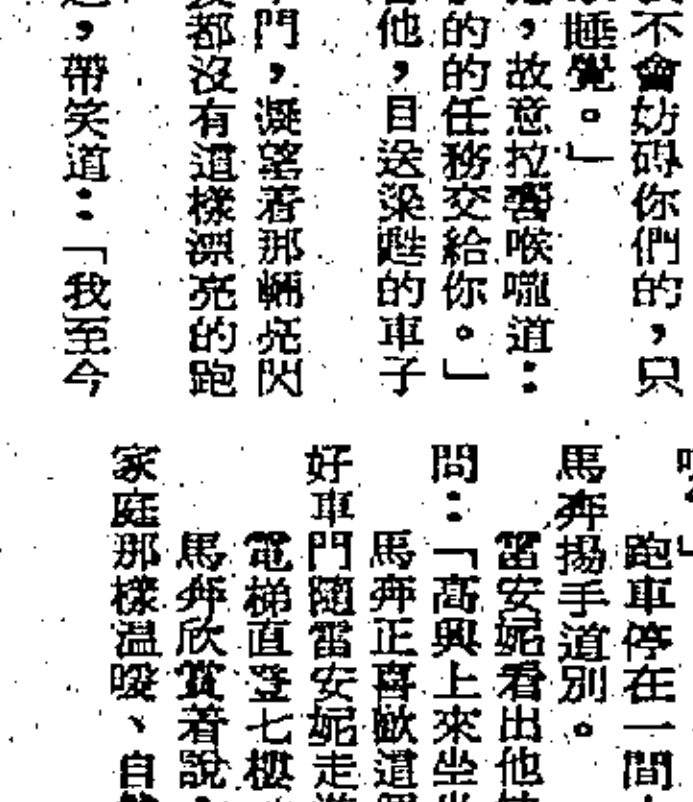 不會妨碍你們的，只
睡覺。」
，故意拉響喉嚨道：
的的任務交給你。」
他，目送梁甦的車子
門，凝望着那輛亮閃
都沒有這樣漂亮的跑
，帶笑道：「我至今
跑車停在一間
馬奔揚手道別。
雷安妮看出他
問：「高興上來坐
馬奔正喜歡這
好車門隨雷安妮走
電梯直登七樓
馬奔欣賞着說
家庭那樣溫暖、自